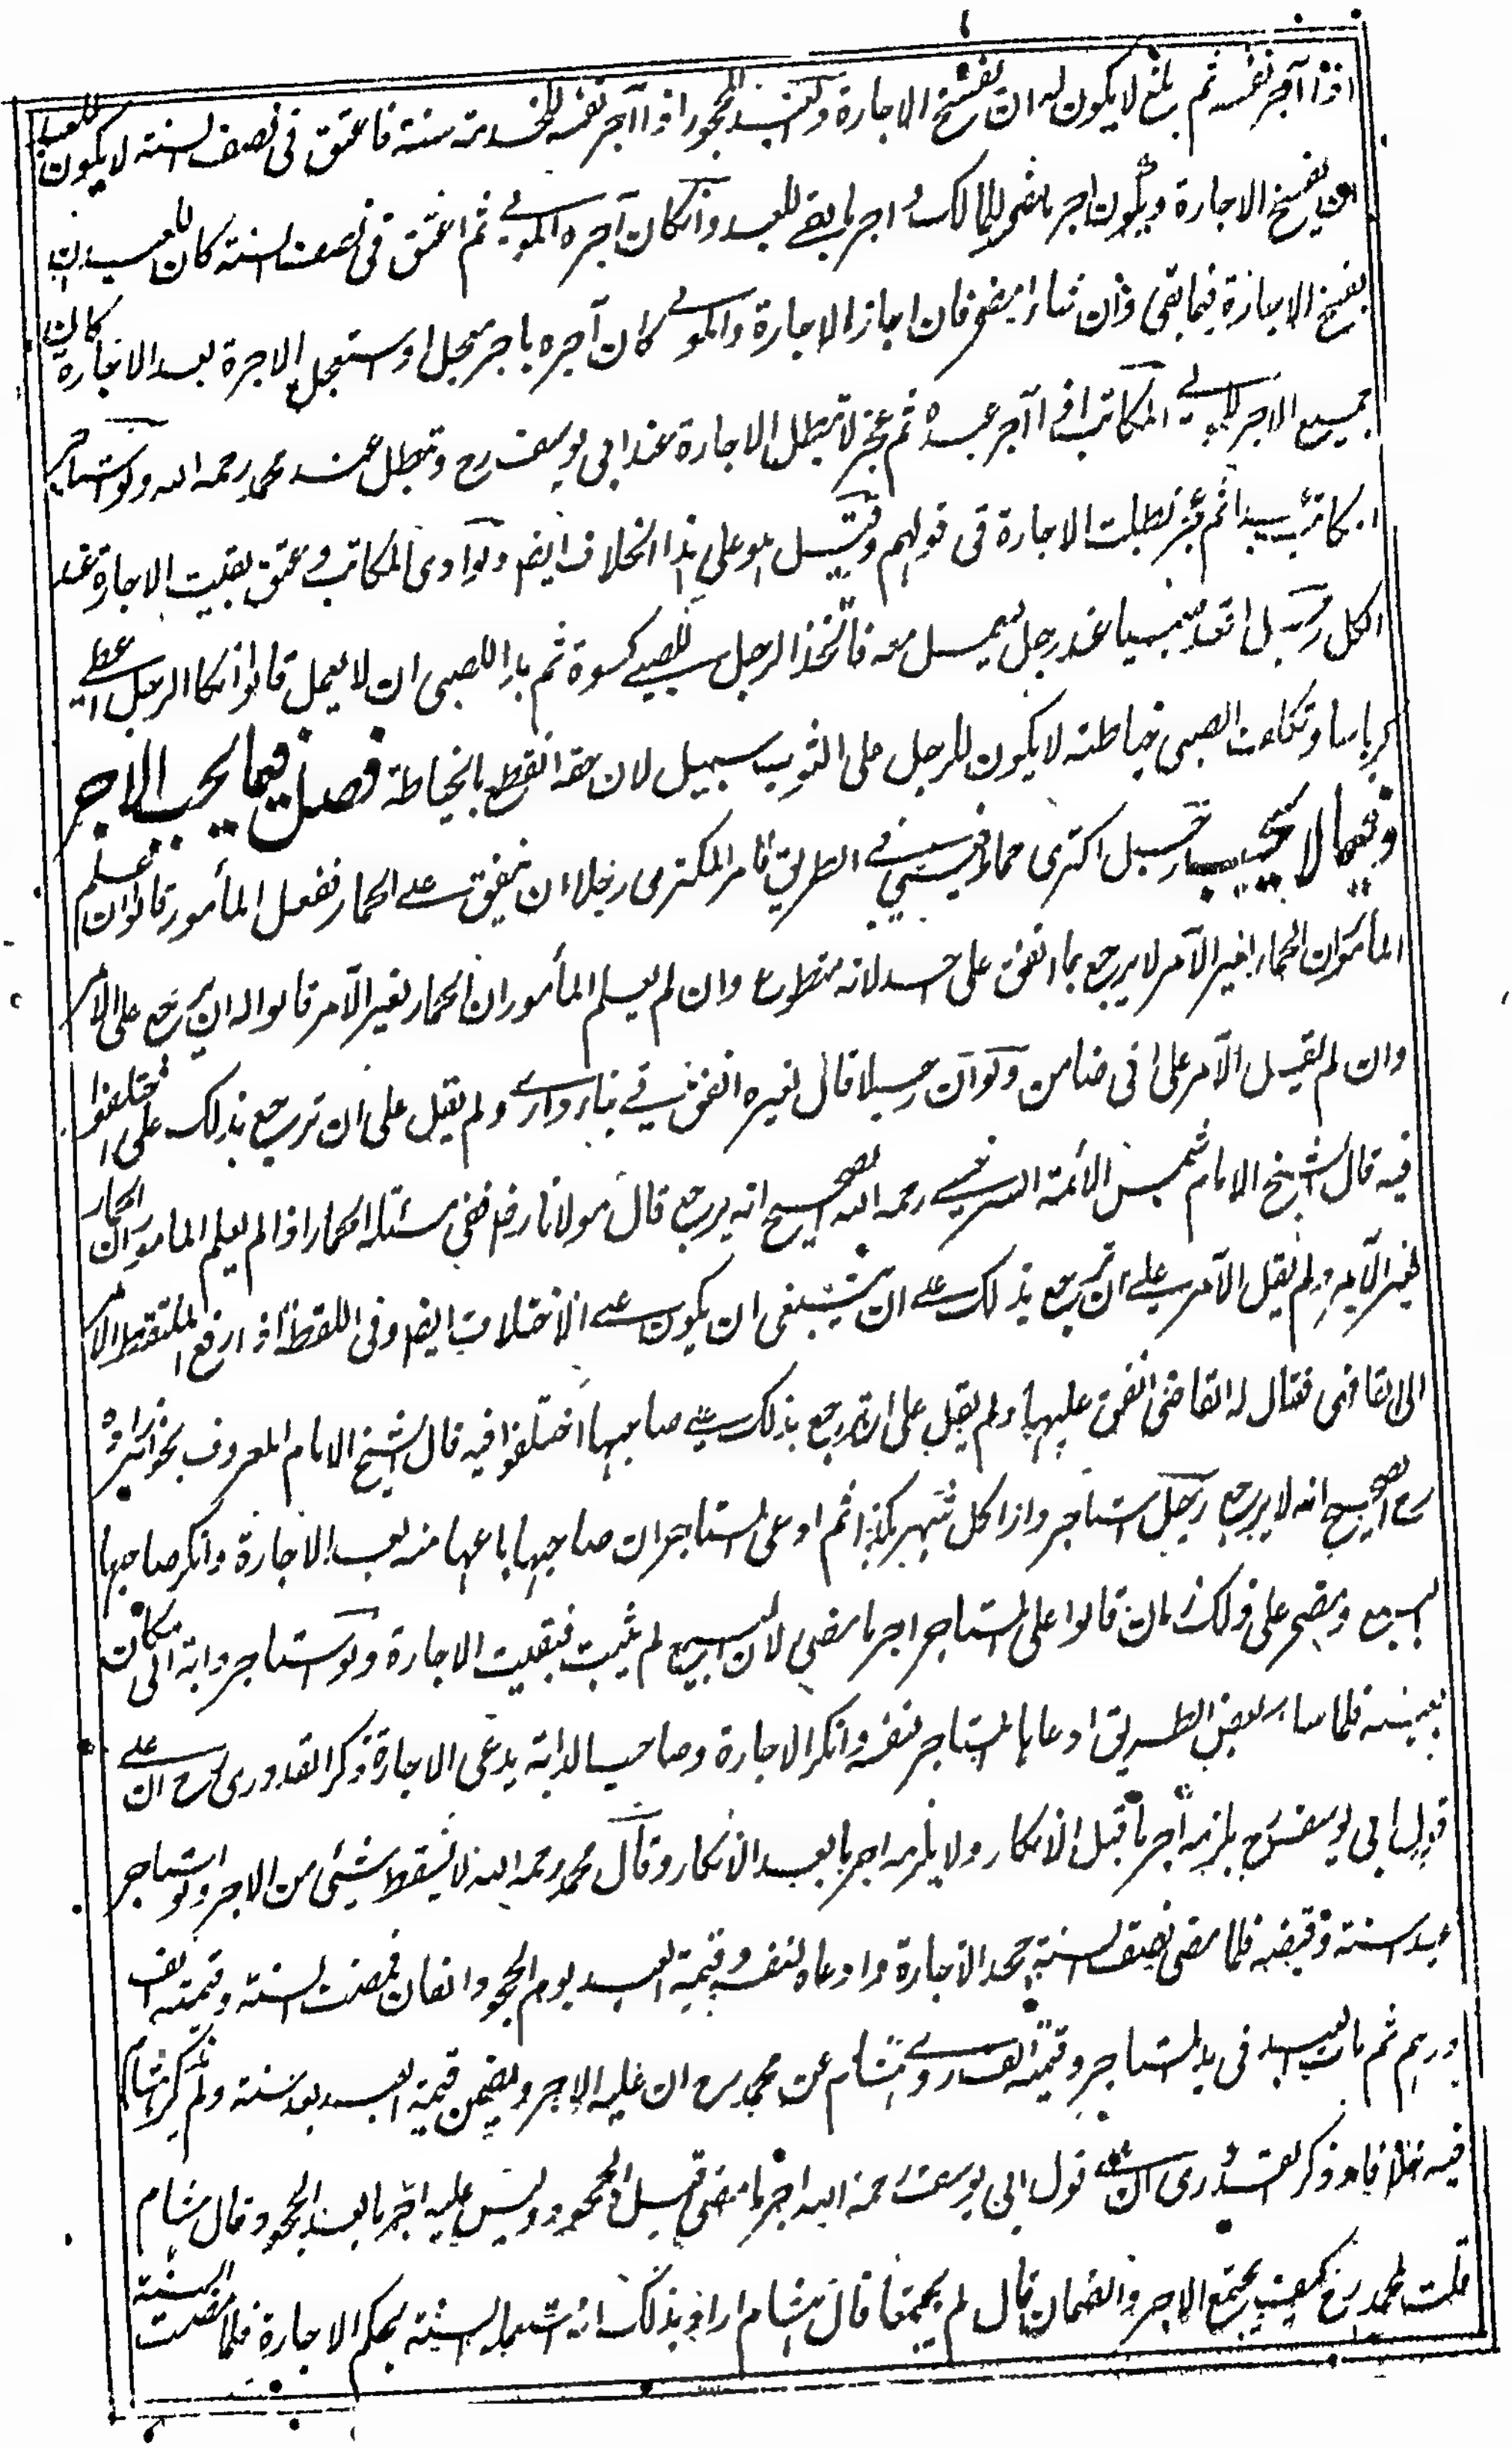 اذا آجر نفسه ثم بلغ لا يكون له ان يفسخ الاجارة وكعبد المحجور اذا آجر نفسه للخدمة سنة فاعتق فى نصف السنة لا يكون للعبد
ان يفسخ الاجارة ويكون اجر ما مضى للمالك و اجر ما بقے للعبد وان كان آجره المولے ثم اعتق فى نصف السنة كان للعبد ان
يفسخ الاجازة فيما بقى وان شاء امضى فان اجاز الاجارة والمولے كان آجره باجر معجل او استعجل الاجرة بعد الاجارة كان
جميع الاجر للمولے المكاتب اذا آجر عبده ثم عجز لا تبطل الاجارة عند ابى يوسف رح وتبطل عند محمد رحمه الله ولو استاجر
المكاتب عبدا ثم عجز بطلت الاجارة فى قولهم وقيل هو على هذا الخلاف ايضا ولو ادى المكاتب وعتق بقيت الاجارة عند
الكل رجل اقعد صبيا عند رجل ليعمل معه فاتخذ الرجل للصبے كسوة ثم بدا للصبى ان لا يعمل قالوا ان كان الرجل اعطے
كرباسا وتكلف الصبى خياطته لا يكون للرجل على الثوب سبيل لان حقه انقطع بالخياطة فصل فيما يجب الاجر
وفيما لا يجب رجل اكترى حمارا فعيى فے الطريق فامر المكترى رجلا ان ينفق علے الحمار ففعل المأمور قالوا ان علم
المأمور ان الحمار لغير الآمر لا يرجع بما انفق على احد لانه متطوع وان لم يعلم المأمور ان الحمار لغير الآمر قالوا له ان يرجع على الآمر
وان لم يقل الآمر على انى ضامن ولو ان رجلا قال لغيره انفق فے بناء دارے ولم يقل على ان ترجع بذلك على اختلفوا
فيه قال الشيخ الامام شمس الائمة السرخسے رحمه الله الصحيح انه يرجع قال مولانا رض فعلى مسئلة الحمار اذا لم يعلم المامور ان الحمار
لغير الآمر ولم يقل الآمر علے ان ترجع بذلك علے ينبغى ان يكون علے الاختلاف ايضا وفى اللقطة اذا رفع الملتقط الامر
الى القاضى فقال له القاضى انفق عليها ولم يقل على ان ترجع بذلك علے صاحبها اختلفوا فيه قال الشيخ الامام المعروف بخواهر زاده
رح الصحيح انه لا يرجع رجل استاجر دارا كل شهر بكذا ثم ادعى المستاجر ان صاحبها باعها منه بعد الاجارة وانكر صاحبها
البيع ومضى على ذلك زمان قالوا على المستاجر اجر ما مضى لان البيع لم يثبت فبقيت الاجارة ولو استاجر دابة الى مكان
بعينه فلما سار بعض الطريق ادعاها المستاجر لنفسه وانكر الاجارة وصاحب الدابة يدعى الاجارة ذكر القدورى رح ان علے
قول ابى يوسف رح يلزمه اجر ما قبل الانكار ولا يلزمه اجر ما بعد الانكار وقال محمد رحمه الله لا يسقط شيئى من الاجر ولو استاجر
عبدا سنة وقبضه فلما مضى نصف السنة جحد الاجارة وادعاه لنفسه وقيمة العبد يوم الجحود الفان فمضت السنة وقيمته الف
درهم ثم مات العبد فى يد المستاجر وقيمته الف روے هشام عن محمد رح ان عليه الاجر ويضمن قيمة العبد بعد سنة ولم يذكر هشام
فيه خلافا وذكر القدورى ان علے قول ابى يوسف رحمه الله اجر ما مضى قبل الجحود وليس عليه اجر ما بعد الجحود قال هشام
قلت لمحمد رح كيف يجتمع الاجر والضمان قال لم يجتمعا قال هشام اراد بذلك انه استعمله السنة بحكم الاجارة فلما مضت السنة